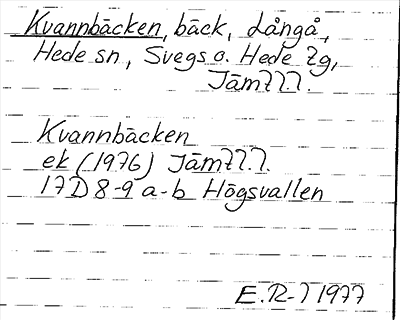 Kvannbäcken, bäck, Långå,
Hede sn, Svegs o. Hede tg,
Jämtl.l.
Kvannbäcken
ek (1976) Jämtl.l.
17D 8-9 a-b Högsvallen
E.R-l 1977